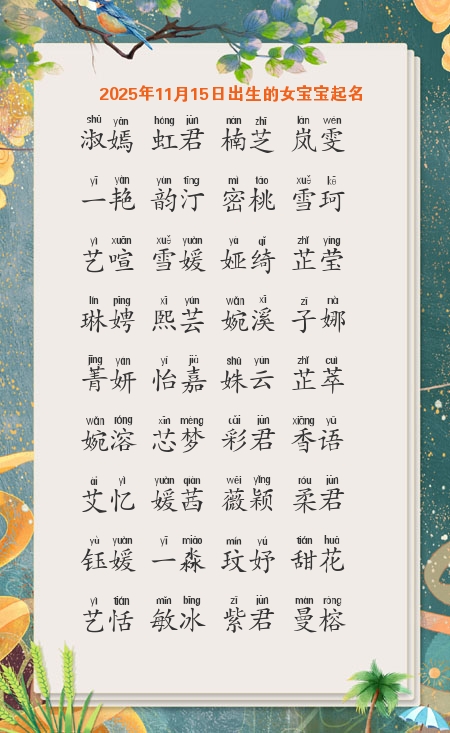 2025年11月15日出生的女宝宝起名
shū yān hóng jūn nán zhī lán wén
淑嫣 虹君 楠芝 岚雯
yī yàn yùn tīng mì táo xuě kē
一艳 韵汀 密桃 雪珂
yì xuān xuě yuàn yà qǐ zhǐ yíng
艺喧 雪媛 娅绮 芷莹
lín pīng xī yún wǎn xī zǐ nà
琳娉 熙芸 婉溪 子娜
jīng yán yí jiā shū yún zhǐ cuì
菁妍 怡嘉 姝云 芷萃
wǎn róng xīn mèng cǎi jūn xiāng yǔ
婉溶 芯梦 彩君 香语
ài yì yuàn qiàn wēi yǐng róu jūn
艾忆 媛茜 薇颖 柔君
yù yuàn yī miǎo mín yú tián huā
钰媛 一淼 玟妤 甜花
yì tián mǐn bīng zǐ jūn màn róng
艺恬 敏冰 紫君 曼榕